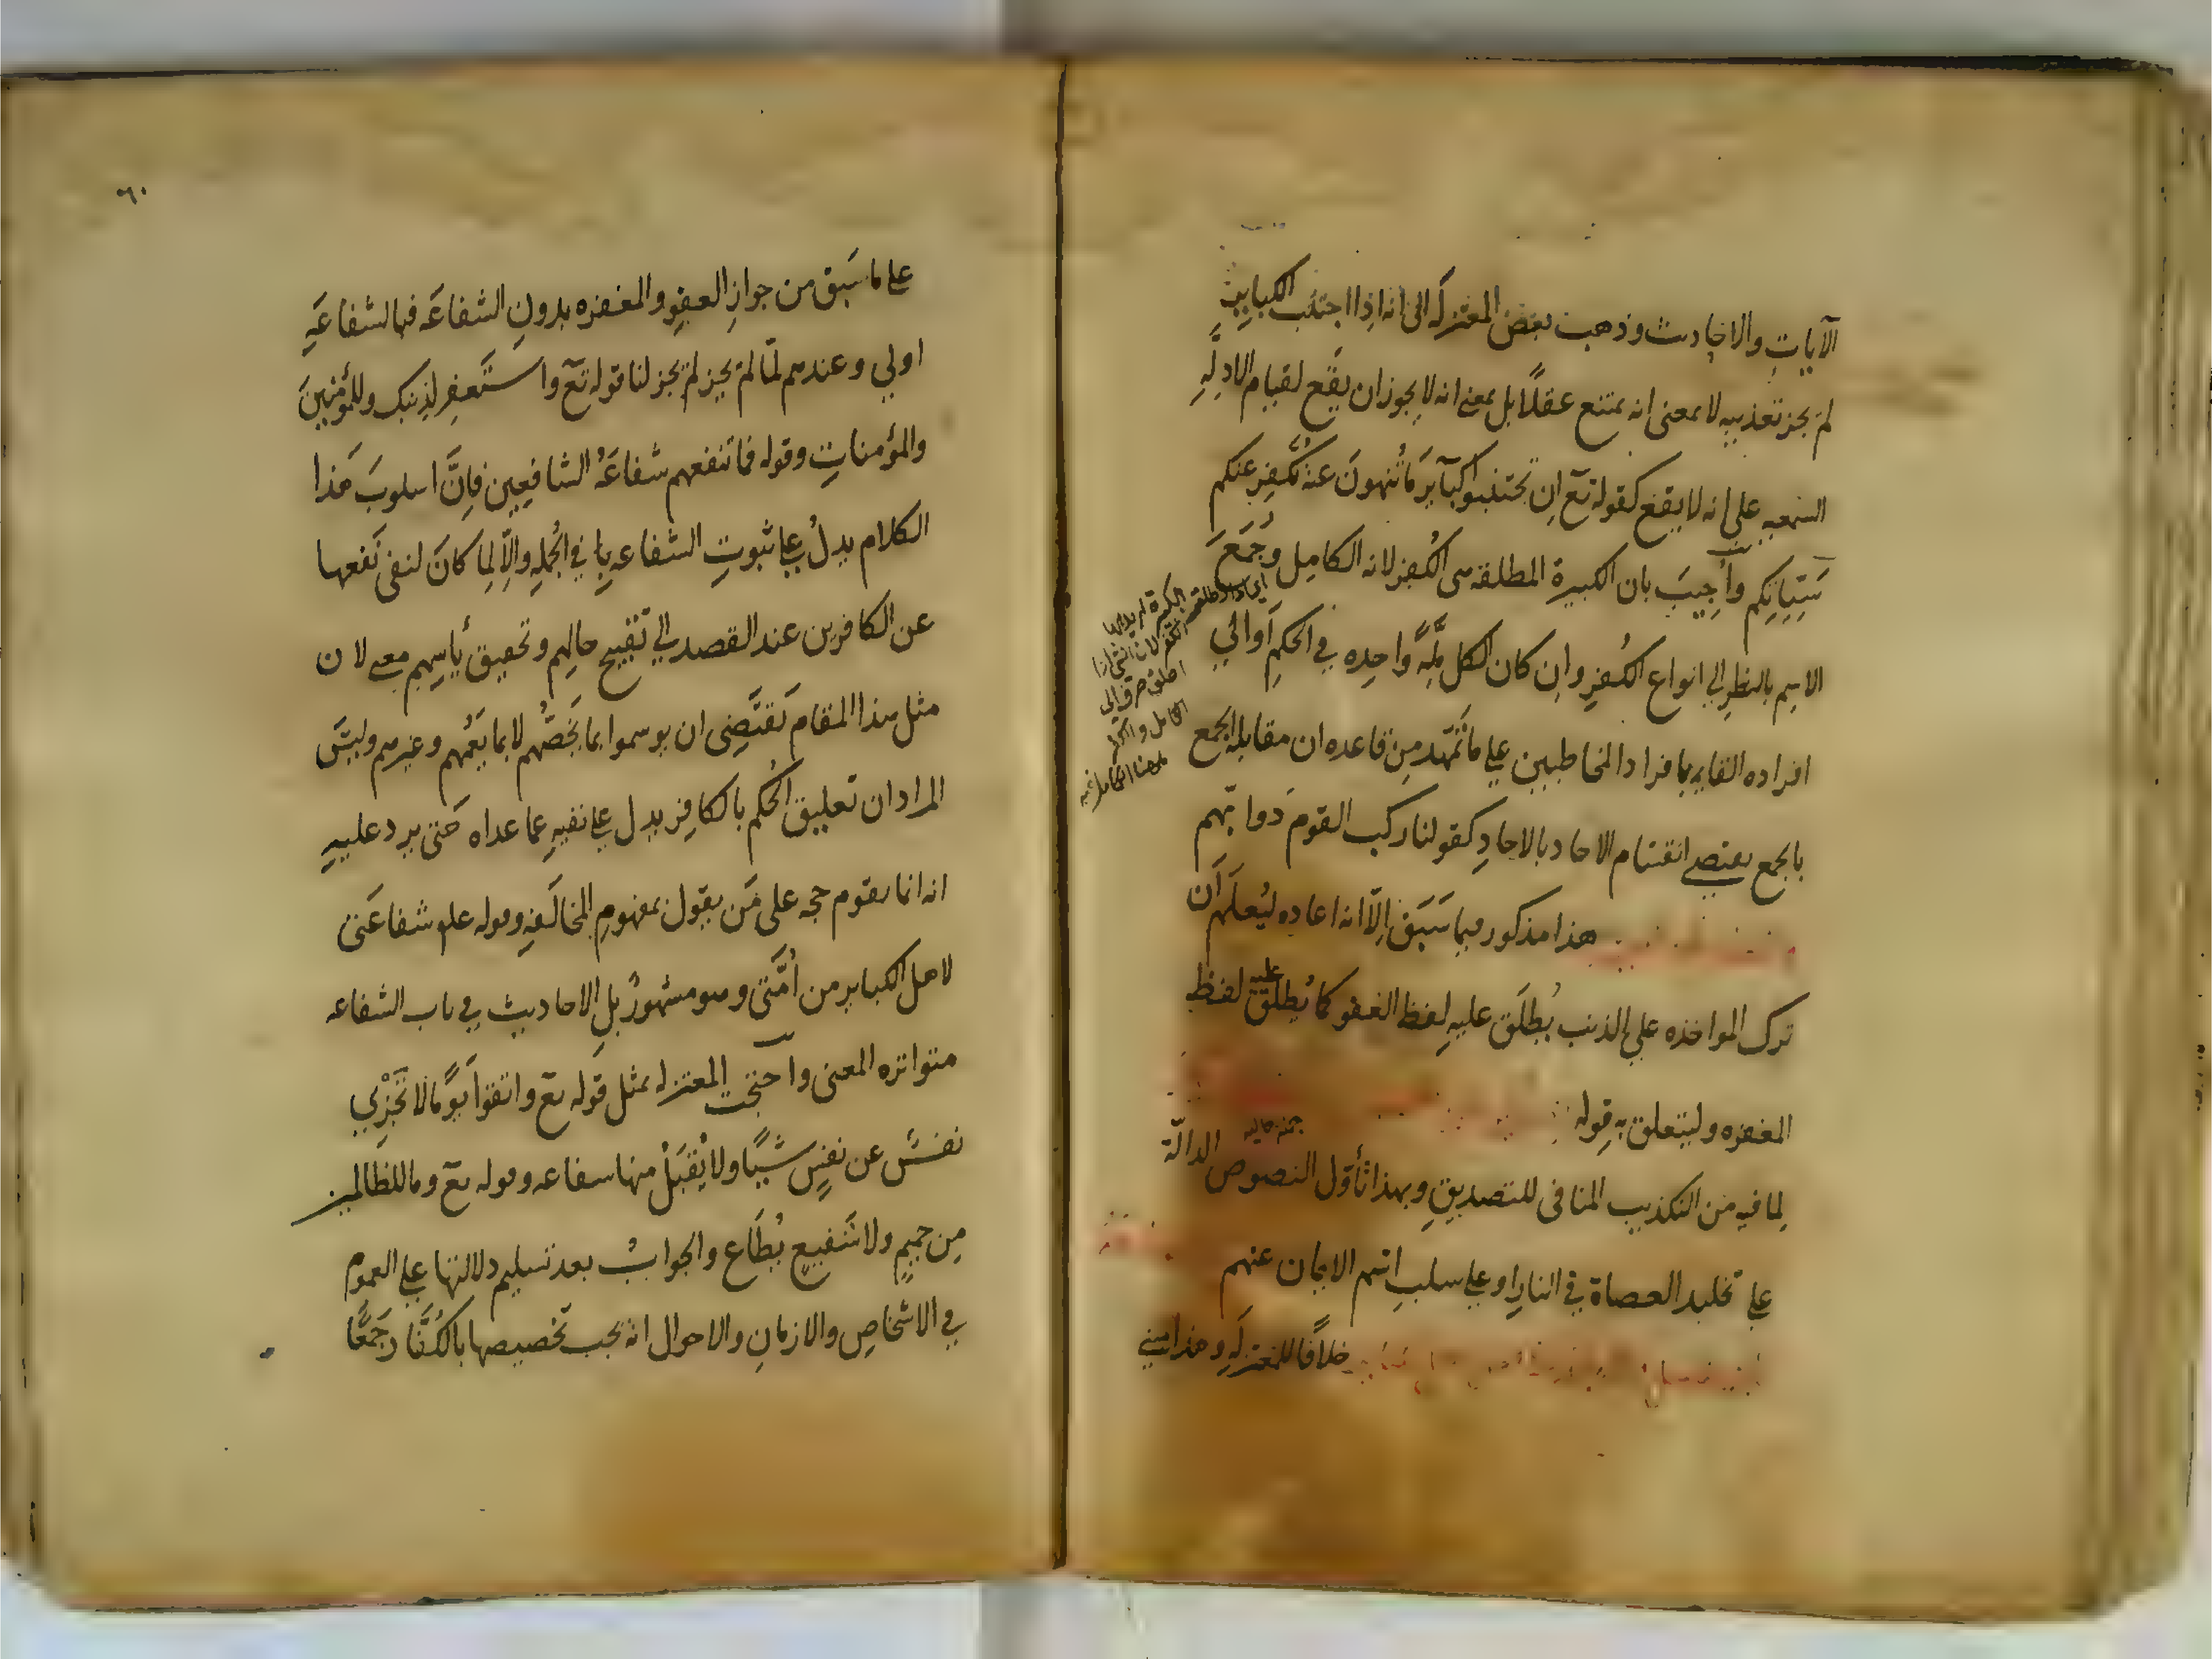 الآيات والاحاديث وذهب بعض المعتزله الى انه اذا اجتنب الكباير
لم يجز تعذيبه لا بمعنى انه يمتنع عقلًا بل بمعنى انه لا يجوز ان يقع لقيام الادلَّهِ
السمعيه على انه لا يقع كقوله تع ان تجتنبوا كبآير مَا تُنهونَ عنه نُكَفِّر عنكم
سَيّئاتِكم وأُجِيبَ بان الكبيرة المطلقه هى الكُفرُ لانه الكامِل وجُمَعَ
الاسِم بالنظر الي انواع الكُفرِ وان كان الكل مِلَّهً واحِده في الحكمِ أوالي
افراده القايمه بافراد المخاطبين علي ما تمهّد من قاعده ان مقابله الجمع
بالجمع يقتضي انقسام الاحاد بالاحادِ كقولنا ركب القوم دَوابّهم
هذا مذكور فيما سَبَق إلّا انه اعاده ليُعلَم أن
ترك المواخذه علي الذنب يُطلَق عليه لفظ العفو كما يُطلَق عليه لفظ
المغفره وليتعلق به قوله
لما فيه من التكذيب المنافى للتصديقِ وبهذا تأوّل النصوص الدالّة
علي تخليد العصاة في النارِ او علي سلبِ اسم الايمان عنهم
خلافًا للمعتزلَهِ وهذا مبني
الكبيرة
الكامل
علي ما سَبَق من جوازِ العفوِ والمغفره بدون الشفاعَه فبالشفاعَهِ
اولي وعندهم لمّا لم يجز لم يجز لنا قوله تع واستَغفِر لِذنبِك وللمؤمنينَ
والمؤمناتِ وقوله فما تنفعهم شفاعَهُ الشافعِين فإنَّ اسلوبَ هَذا
الكلام يدلُ علي ثبوتِ الشفاعه في الجُملهِ والّا لِما كانَ لنفى نَفعها
عن الكافرين عند القصد الي تقبيح حالِهم وتحقيق يأسِهم معنے لان
مثل هذا المقام يَقتَضِى ان يوسموا بما يَخُصُّهم لا بما يَعُمُهم وغيرهم وليسَ
المراد ان تعليق الُحكم بالكافِر يدل علي نفيهِ عما عداه حَتى يرد عليهِ
انه انما يقوم حجه على مَن يقول بمفهومِ المخالَفهِ وقوله علم شفاعَتى
لاهل الكباير من اُمَّتى وهو مشهورٌ بلِ الاحاديث في باب الشفاعه
متواتره المعنى واحتجت المعتزله بمثل قَوله تع واتقوا يَومًا لا تَجْزِي
نفسٌ عن نفسٍ شيًا ولا يُقبَلُ منها شفاعه وقوله تع وما للظالمين
مِن حميمٍ ولا شَفيعٍ يُطَاع والجوابُ بعد تسليم دلالتها علي العموم
في الاشخاصِ والازمانِ والاحوال انه يجب تخصيصها بالكُفّار جَمعًا
٦٠